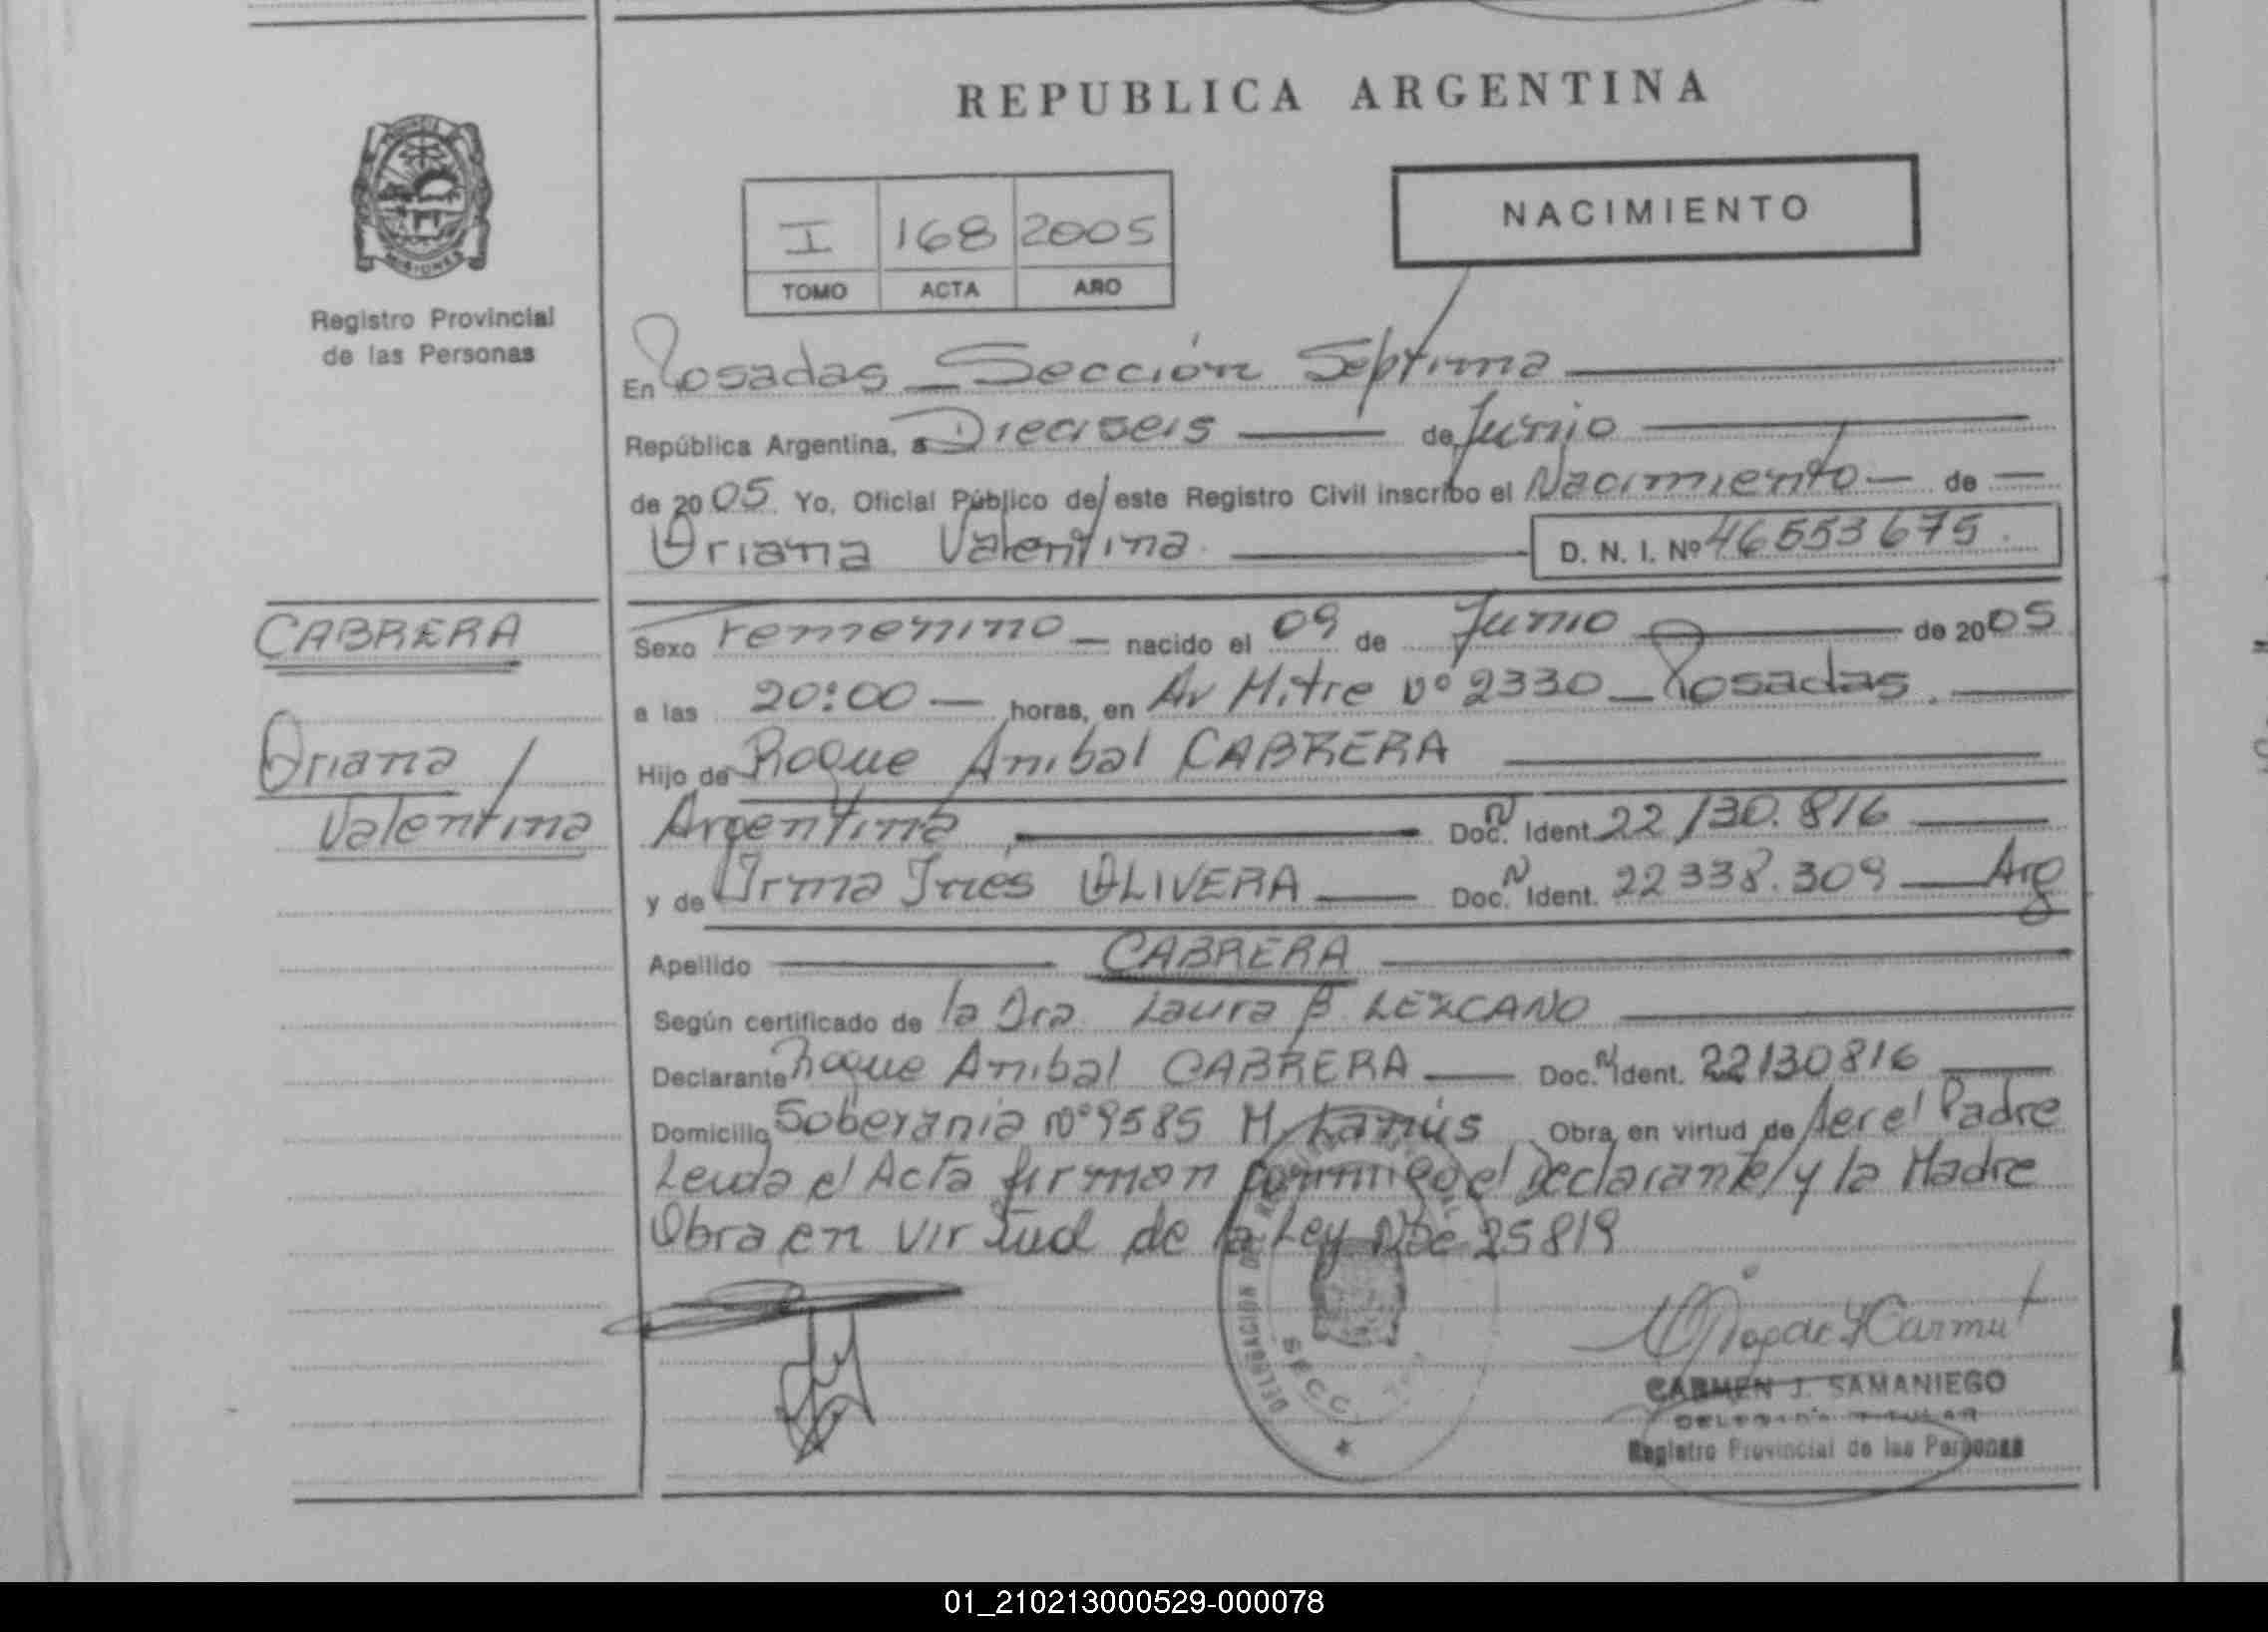 REPUBLICA ARGENTINA
MISIONES
Registro Provincial
de las Personas
I 168 2005
TOMO ACTA AÑO
NACIMIENTO
En Posadas - Sección Séptima
República Argentina, a Dieciseis de Junio
de 2005. Yo, Oficial Público de este Registro Civil inscribo el Nacimiento de
Oriana Valentina D. N. I. Nº 46553675
CABRERA
Oriana
Valentina
Sexo Femenino nacido el 09 de Junio de 2005
a las 20:00 horas, en Av Mitre Nº 2330 - Posadas.
Hijo de Roque Anibal CABRERA
Argentina, Doc. N Ident. 22130.816
y de Irma Ines OLIVERA Doc. N Ident. 22338.309 Arg
Apellido CABRERA
Según certificado de la Dra. Laura B. LEZCANO
Declarante Roque Anibal CABRERA Doc. N Ident. 22130816
Domicilio Soberania Nº 9585 M. Lanús Obra en virtud de ser el Padre
Leida el Acta firman conmigo el Declarante y la Madre
Obra en Virtud de la Ley Nac 25819
DELEGACION SECC.
CARMEN J. SAMANIEGO
DELEGADA TITULAR
Registro Provincial de las Personas
01_210213000529-000078